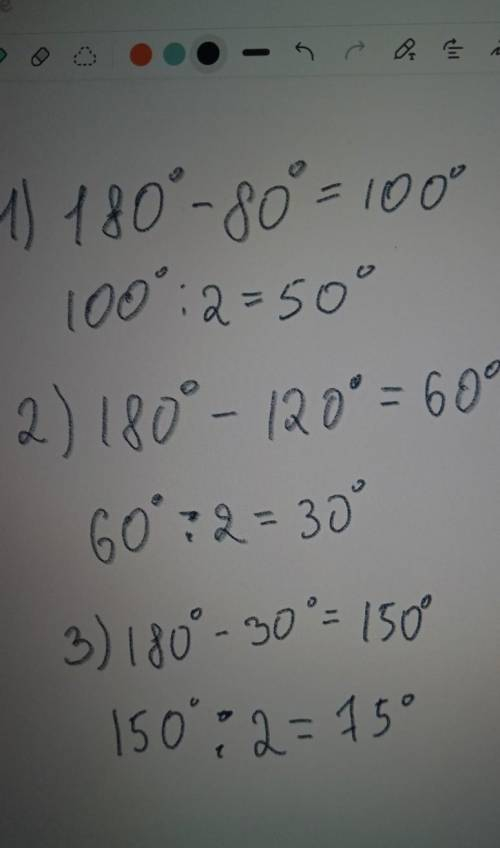 1) 180° - 80° = 100°
100° : 2 = 50°
2) 180° - 120° = 60°
60° : 2 = 30°
3) 180° - 30° = 150°
150° : 2 = 75°